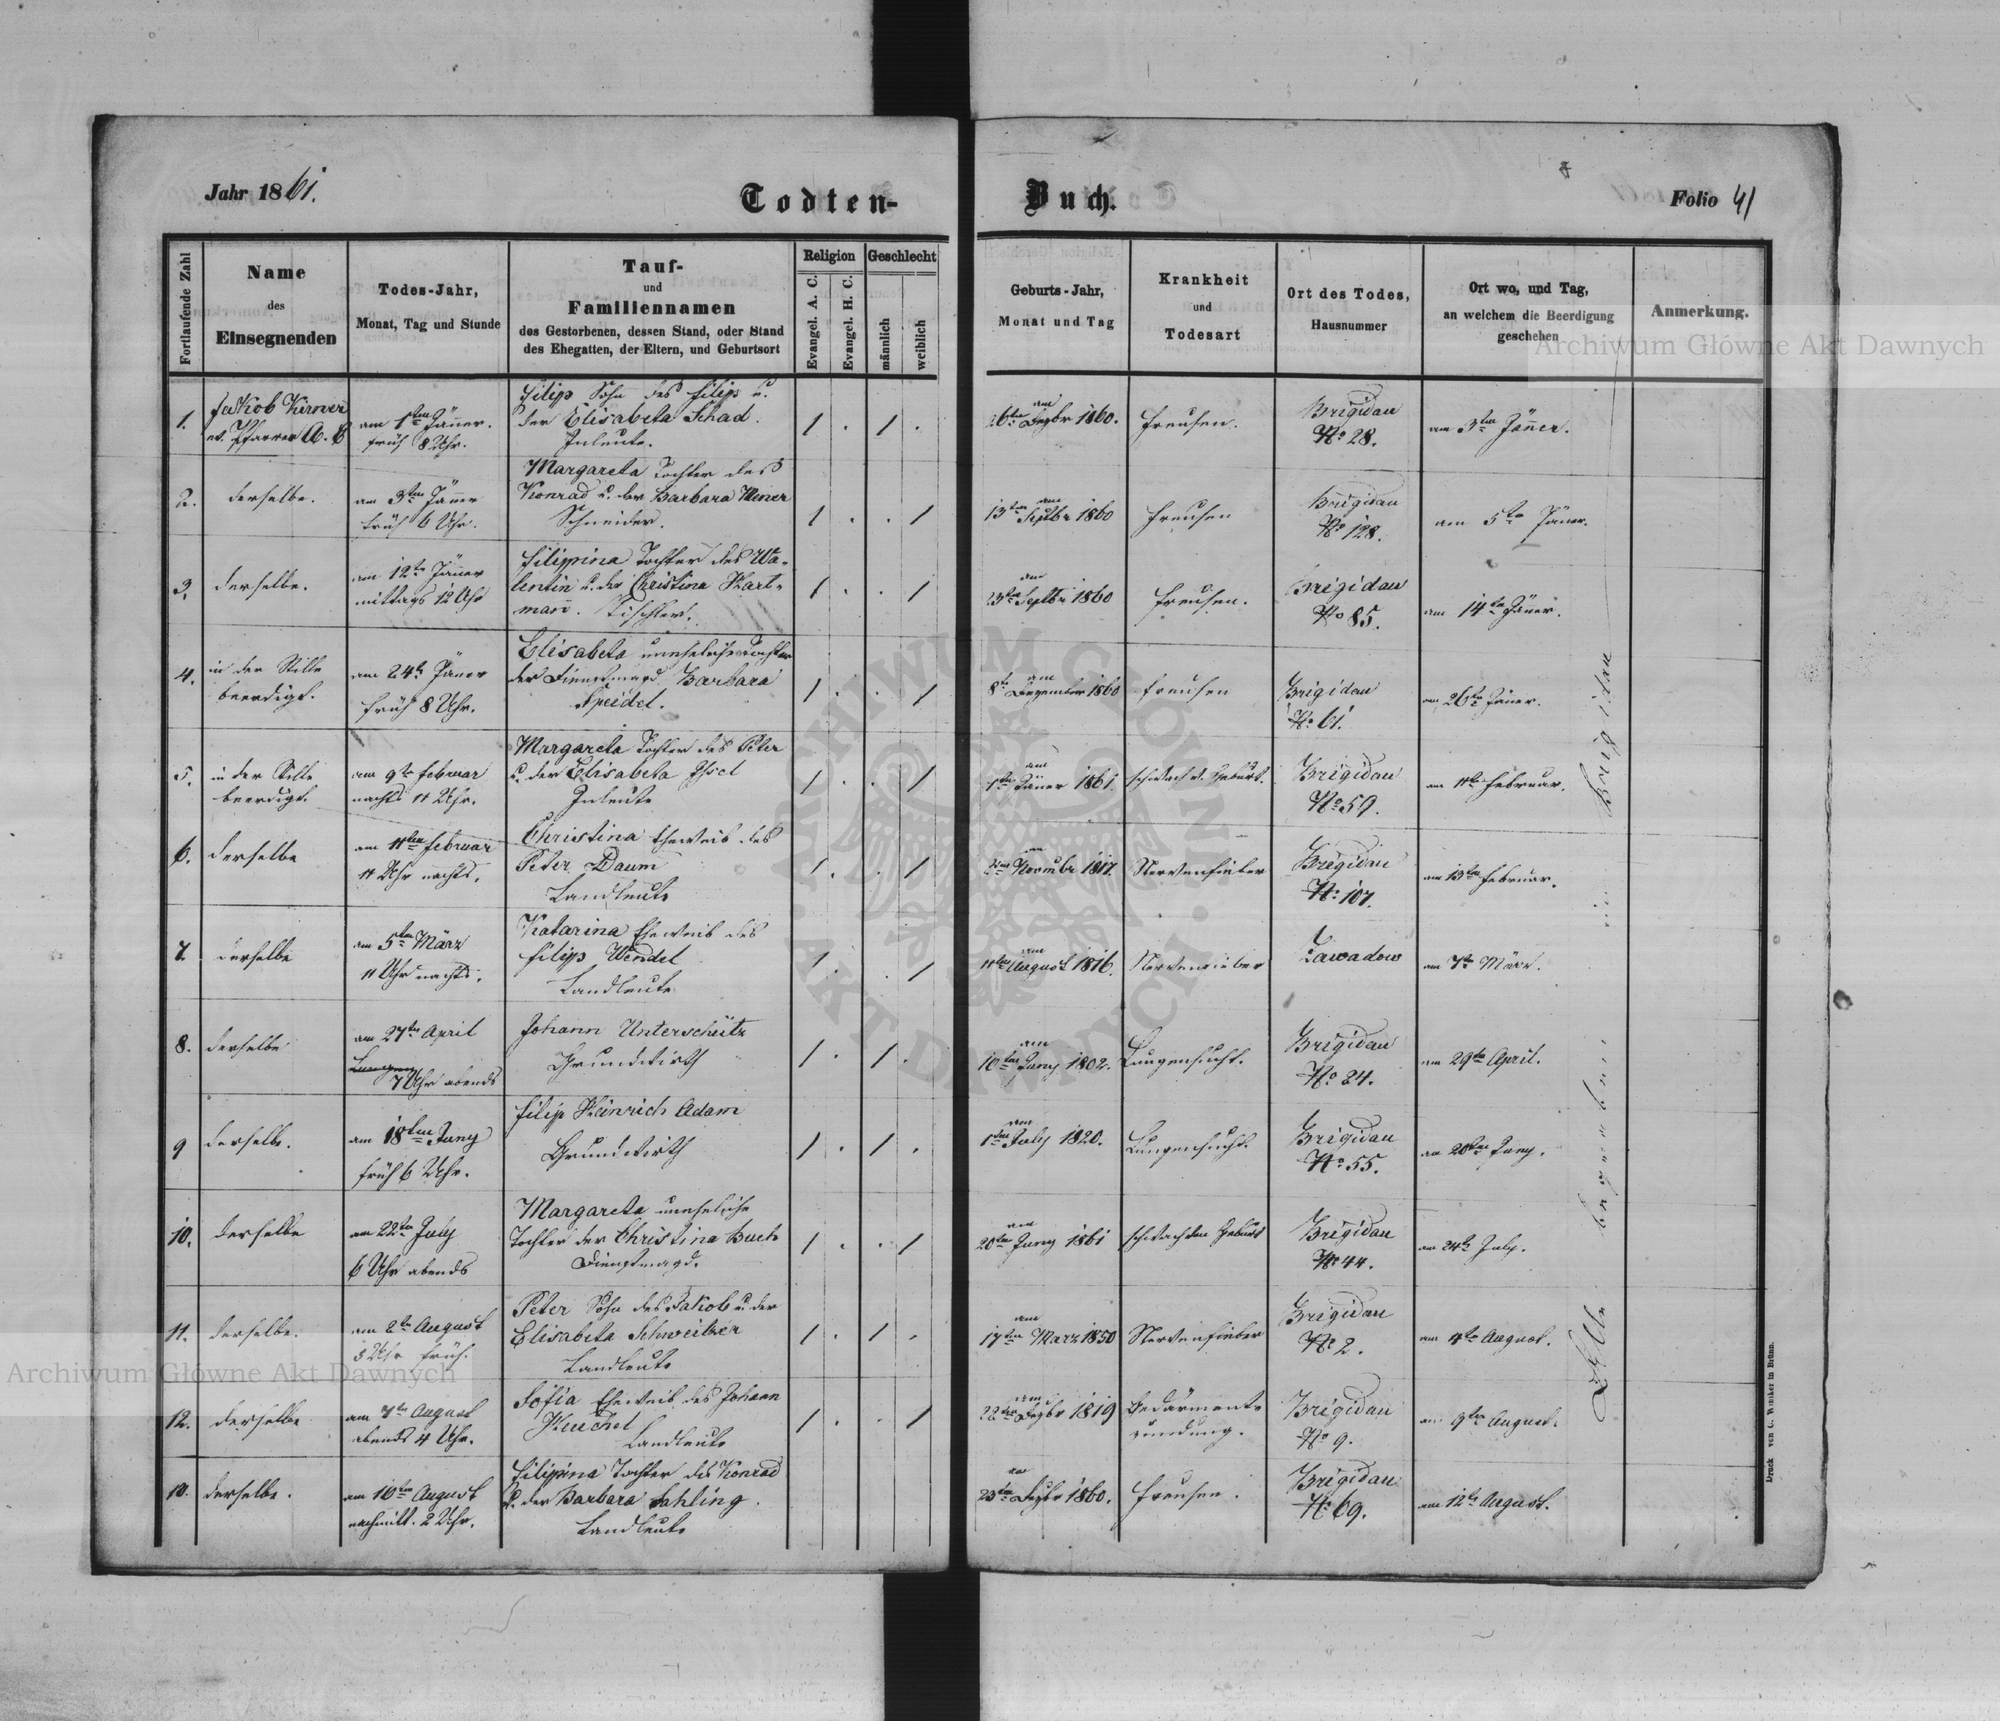 Jahr 1861.
Todten-
Buch.
Folio 41
Fortlaufende Zahl
Name
des
Einsegnenden
Todes-Jahr,
Monat, Tag und Stunde
Tauf-
und
Familiennamen
des Gestorbenen, dessen Stand, oder Stand
des Ehegatten, der Eltern, und Geburtsort
Religion
Evangel. A. C.
Evangel. H. C.
Geschlecht
männlich
weiblich
Geburts-Jahr,
Monat und Tag
Krankheit
und
Todesart
Ort des Todes,
Hausnummer
Ort wo, und Tag,
an welchem die Beerdigung
geschehen
Anmerkung.
1.
Jakob Kerner
ev. Pfarrer A. C
am 1ten Jänner.
früh 8 Uhr.
Filip Sohn des Filip u.
der Elisabeta Schad.
Inleute.
1 . 1 .
am
26ten Dezbr 1860.
Freusen.
Brigidau
No 28.
am 3ten Jänner.
2.
derselbe.
am 3ten Jänner
früh 6 Uhr.
Margareta Tochter des
Konrad u. der Barbara
Schneider.
1 . . 1
am
13ten Septbr 1860
Freusen
Brigidau
No 128.
am 5ten Jäner.
3.
derselbe.
am 12ten Jänner
mittags 12 Uhr
Filippina Tochter des Wa-
lentin u. der Christina Hart-
mann. Tischler.
1 . . 1
am
23ten Septbr 1860
Freusen.
Brigidau
No 85.
am 14ten Jäner.
4.
in der Stille
beerdigt.
am 24ten Jäner
früh 8 Uhr.
Elisabeta uneheliche Tochter
der Dienstmagd Barbara
Speidel.
1 . . 1
am
8ten Dezember 1860
Freusen
Brigidau
No 61.
am 26ten Jäner.
5.
in der Stille
beerdigt.
am 9ten Februar
nachts 11 Uhr.
Margareta Tochter des Peter
u. der Elisabeta
Inleute
1 . . 1
am
1ten Jäner 1861.
schwach d. Geburt.
Brigidau
No 59.
am 11ten Februar.
6.
derselbe
am 11ten Februar
11 Uhr nachts.
Christina Eheweib des
Peter Daum
Landleute
1 . . 1
am
2ten Novmbr 1817.
Nervenfieber
Brigidau
No 107.
am 13ten Februar.
7.
derselbe
am 5ten März
11 Uhr nachts.
Katarina Eheweib des
Filip Wendel
Landleute
1 . . 1
am
11ten August 1816.
Nervenfieber
Zawadow
am 7ten März.
8.
derselbe
am 27ten April
7 Uhr abends
Johann Unterschütz
Grundwirth
1 . 1 .
am
10ten Juny 1802.
Lungensucht.
Brigidau
No 24.
am 29ten April.
9
derselbe.
am 18ten Juny
früh 6 Uhr.
Filip Heinrich Adam
Grundwirth
1 . 1 .
am
1ten July 1820.
Lungensucht.
Brigidau
No 55.
am 20ten Juny.
10.
derselbe
am 22ten July
6 Uhr abends
Margareta uneheliche
Tochter der Christina Buch
Dienstmagd.
1 . . 1
am
20ten Juny 1861
schwach von Geburt
Brigidau
No 44.
am 24ten July.
11.
derselbe.
am 2ten August
5 Uhr früh.
Peter Sohn des Jakob u. der
Elisabeta Schweitzer
Landleute
1 . 1 .
am
17ten März 1850
Nervenfieber
Brigidau
No 2.
am 4ten August.
12.
derselbe
am 7ten August
abends 4 Uhr.
Sofia Eheweib des Johann
Heuchel
Landleute
1 . . 1
am
22ten Dezbr 1819
Gedärment-
zündung.
Brigidau
No 9.
am 9ten August.
derselbe.
am 10ten August
nachmitt. 2 Uhr.
Filipina Tochter des Konrad
u. der Barbara Fahling.
Landleute
am
23ten Dezbr 1860.
Freusen.
Brigidau
No 69.
am 12ten August.
Alle begraben in Brigidau
Druck von C. Winiker in Brünn.
Archiwum Główne Akt Dawnych
Archiwum Główne Akt Dawnych
ARCHIWUM GŁÓWNE AKT DAWNYCH